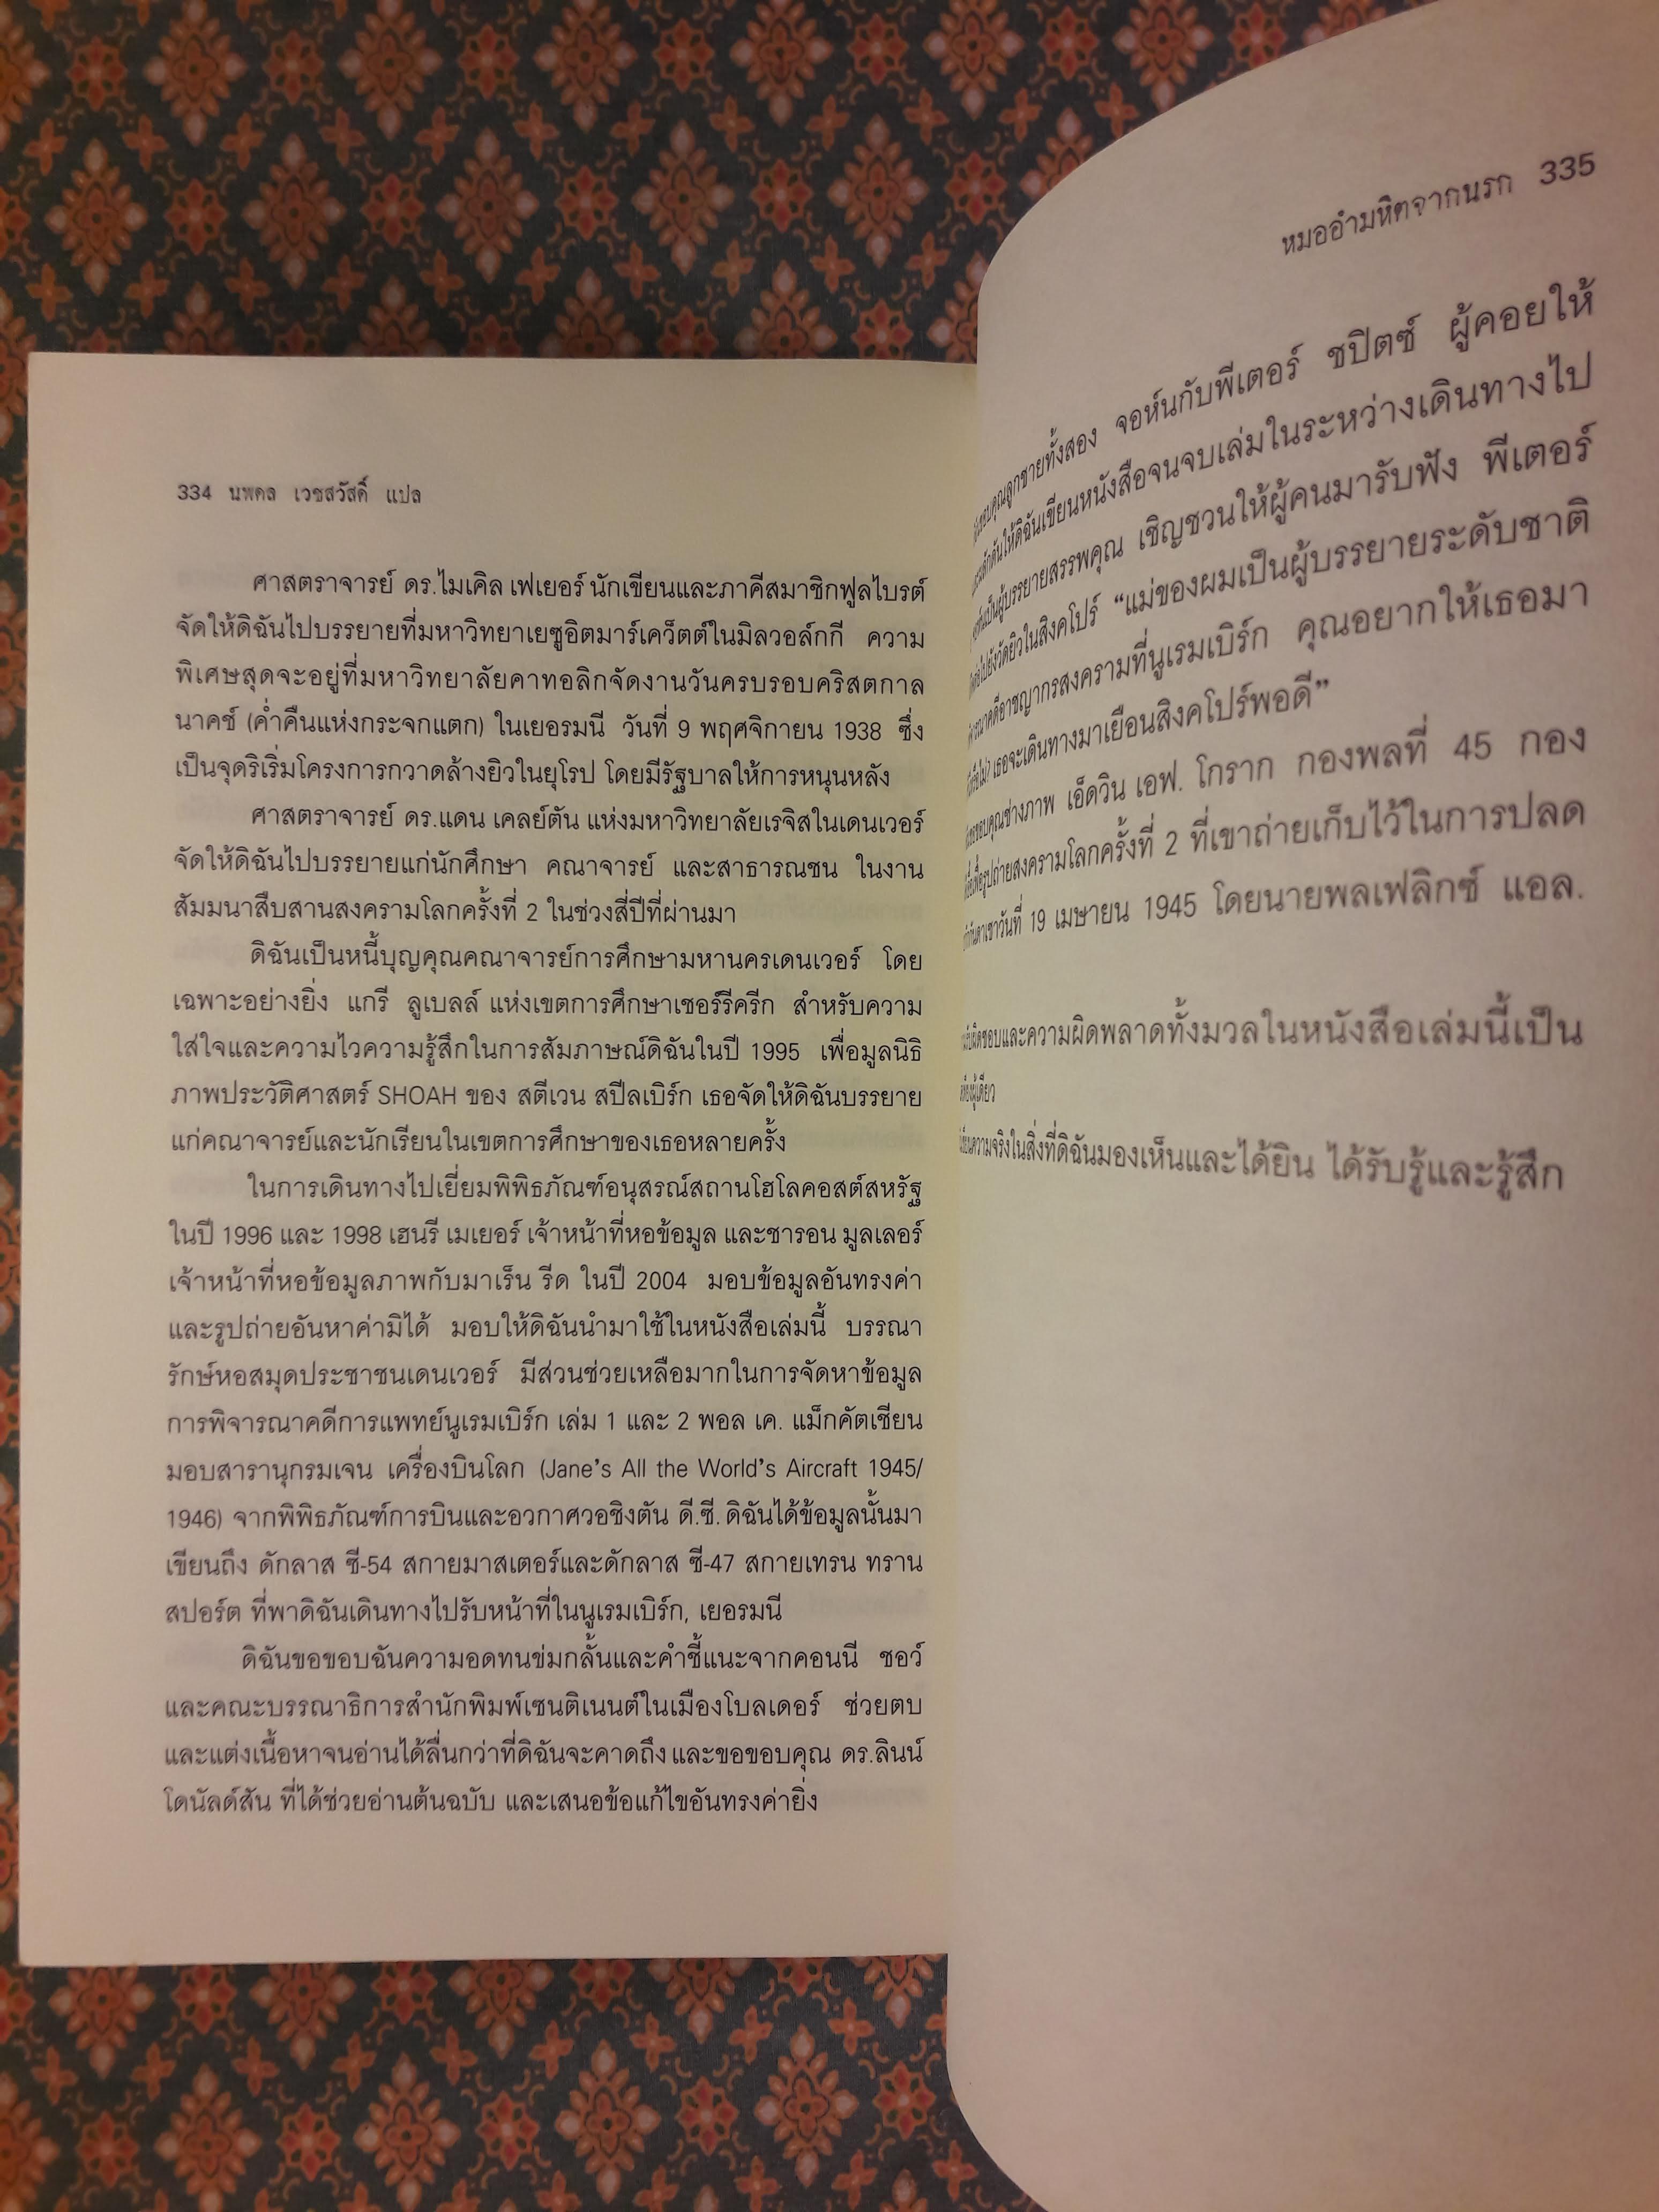 334 นพดล เวชสวัสดิ์ แปล
ศาสตราจารย์ ดร.ไมเคิล เฟเยอร์ นักเขียนและภาคีสมาชิกฟูลไบรต์
จัดให้ดิฉันไปบรรยายที่มหาวิทยาเยซูอิตมาร์เคว็ตต์ในมิลวอล์กกี ความ
พิเศษสุดจะอยู่ที่มหาวิทยาลัยคาทอลิกจัดงานวันครบรอบคริสตกาล
นาคช์ (ค่ำคืนแห่งกระจกแตก) ในเยอรมนี วันที่ 9 พฤศจิกายน 1938 ซึ่ง
เป็นจุดริเริ่มโครงการกวาดล้างยิวในยุโรป โดยมีรัฐบาลให้การหนุนหลัง
ศาสตราจารย์ ดร.แดน เคลย์ตัน แห่งมหาวิทยาลัยเรจิสในเดนเวอร์
จัดให้ดิฉันไปบรรยายแก่นักศึกษา คณาจารย์ และสาธารณชน ในงาน
สัมมนาสืบสานสงครามโลกครั้งที่ 2 ในช่วงสี่ปีที่ผ่านมา
ดิฉันเป็นหนี้บุญคุณคณาจารย์การศึกษามหานครเดนเวอร์ โดย
เฉพาะอย่างยิ่ง แกรี ลูเบลล์ แห่งเขตการศึกษาเชอร์รีครีก สำหรับความ
ใส่ใจและความไวความรู้สึกในการสัมภาษณ์ดิฉันในปี 1995 เพื่อมูลนิธิ
ภาพประวัติศาสตร์ SHOAH ของ สตีเวน สปีลเบิร์ก เธอจัดให้ดิฉันบรรยาย
แก่คณาจารย์และนักเรียนในเขตการศึกษาของเธอหลายครั้ง
ในการเดินทางไปเยี่ยมพิพิธภัณฑ์อนุสรณ์สถานโฮโลคอสต์สหรัฐ
ในปี 1996 และ 1998 เฮนรี เมเยอร์ เจ้าหน้าที่หอข้อมูล และชารอน มูลเลอร์
เจ้าหน้าที่หอข้อมูลภาพกับมาเร็น รีด ในปี 2004 มอบข้อมูลอันทรงค่า
และรูปถ่ายอันหาค่ามิได้ มอบให้ดิฉันนำมาใช้ในหนังสือเล่มนี้ บรรณา
รักษ์หอสมุดประชาชนเดนเวอร์ มีส่วนช่วยเหลือมากในการจัดหาข้อมูล
การพิจารณาคดีการแพทย์นูเรมเบิร์ก เล่ม 1 และ 2 พอล เค. แม็กคัตเชียน
มอบสารานุกรมเจน เครื่องบินโลก (Jane's All the World's Aircraft 1945/
1946) จากพิพิธภัณฑ์การบินและอวกาศวอชิงตัน ดี.ซี. ดิฉันได้ข้อมูลนั้นมา
เขียนถึง ดักลาส ซี-54 สกายมาสเตอร์และดักลาส ซี-47 สกายเทรน ทราน
สปอร์ต ที่พาดิฉันเดินทางไปรับหน้าที่ในนูเรมเบิร์ก, เยอรมนี
ดิฉันขอขอบฉันความอดทนข่มกลั้นและคำชี้แนะจากคอนนี ชอว์
และคณะบรรณาธิการสำนักพิมพ์เซนติเนนต์ในเมืองโบลเดอร์ ช่วยตบ
และแต่งเนื้อหาจนอ่านได้ลื่นกว่าที่ดิฉันจะคาดถึง และขอขอบคุณ ดร.ลินน์
โดนัลด์สัน ที่ได้ช่วยอ่านต้นฉบับ และเสนอข้อแก้ไขอันทรงค่ายิ่ง
หมออำมหิตจากนรก 335
ขอบคุณลูกชายทั้งสอง จอห์นกับพีเตอร์ ชปิตซ์ ผู้คอยให้
ให้ดิฉันเขียนหนังสือจนจบเล่มในระหว่างเดินทางไป
เป็นผู้บรรยายสรรพคุณ เชิญชวนให้ผู้คนมารับฟัง พีเตอร์
ไปยังวัดยิวในสิงคโปร์ “แม่ของผมเป็นผู้บรรยายระดับชาติ
คดีอาชญากรสงครามที่นูเรมเบิร์ก คุณอยากให้เธอมา
เธอจะเดินทางมาเยือนสิงคโปร์พอดี”
ขอบคุณช่างภาพ เอ็ดวิน เอฟ. โกราก กองพลที่ 45 กอง
รูปถ่ายสงครามโลกครั้งที่ 2 ที่เขาถ่ายเก็บไว้ในการปลด
วันที่ 19 เมษายน 1945 โดยนายพลเฟลิกซ์ แอล.
ผิดชอบและความผิดพลาดทั้งมวลในหนังสือเล่มนี้เป็น
ผู้เดียว
ความจริงในสิ่งที่ดิฉันมองเห็นและได้ยิน ได้รับรู้และรู้สึก